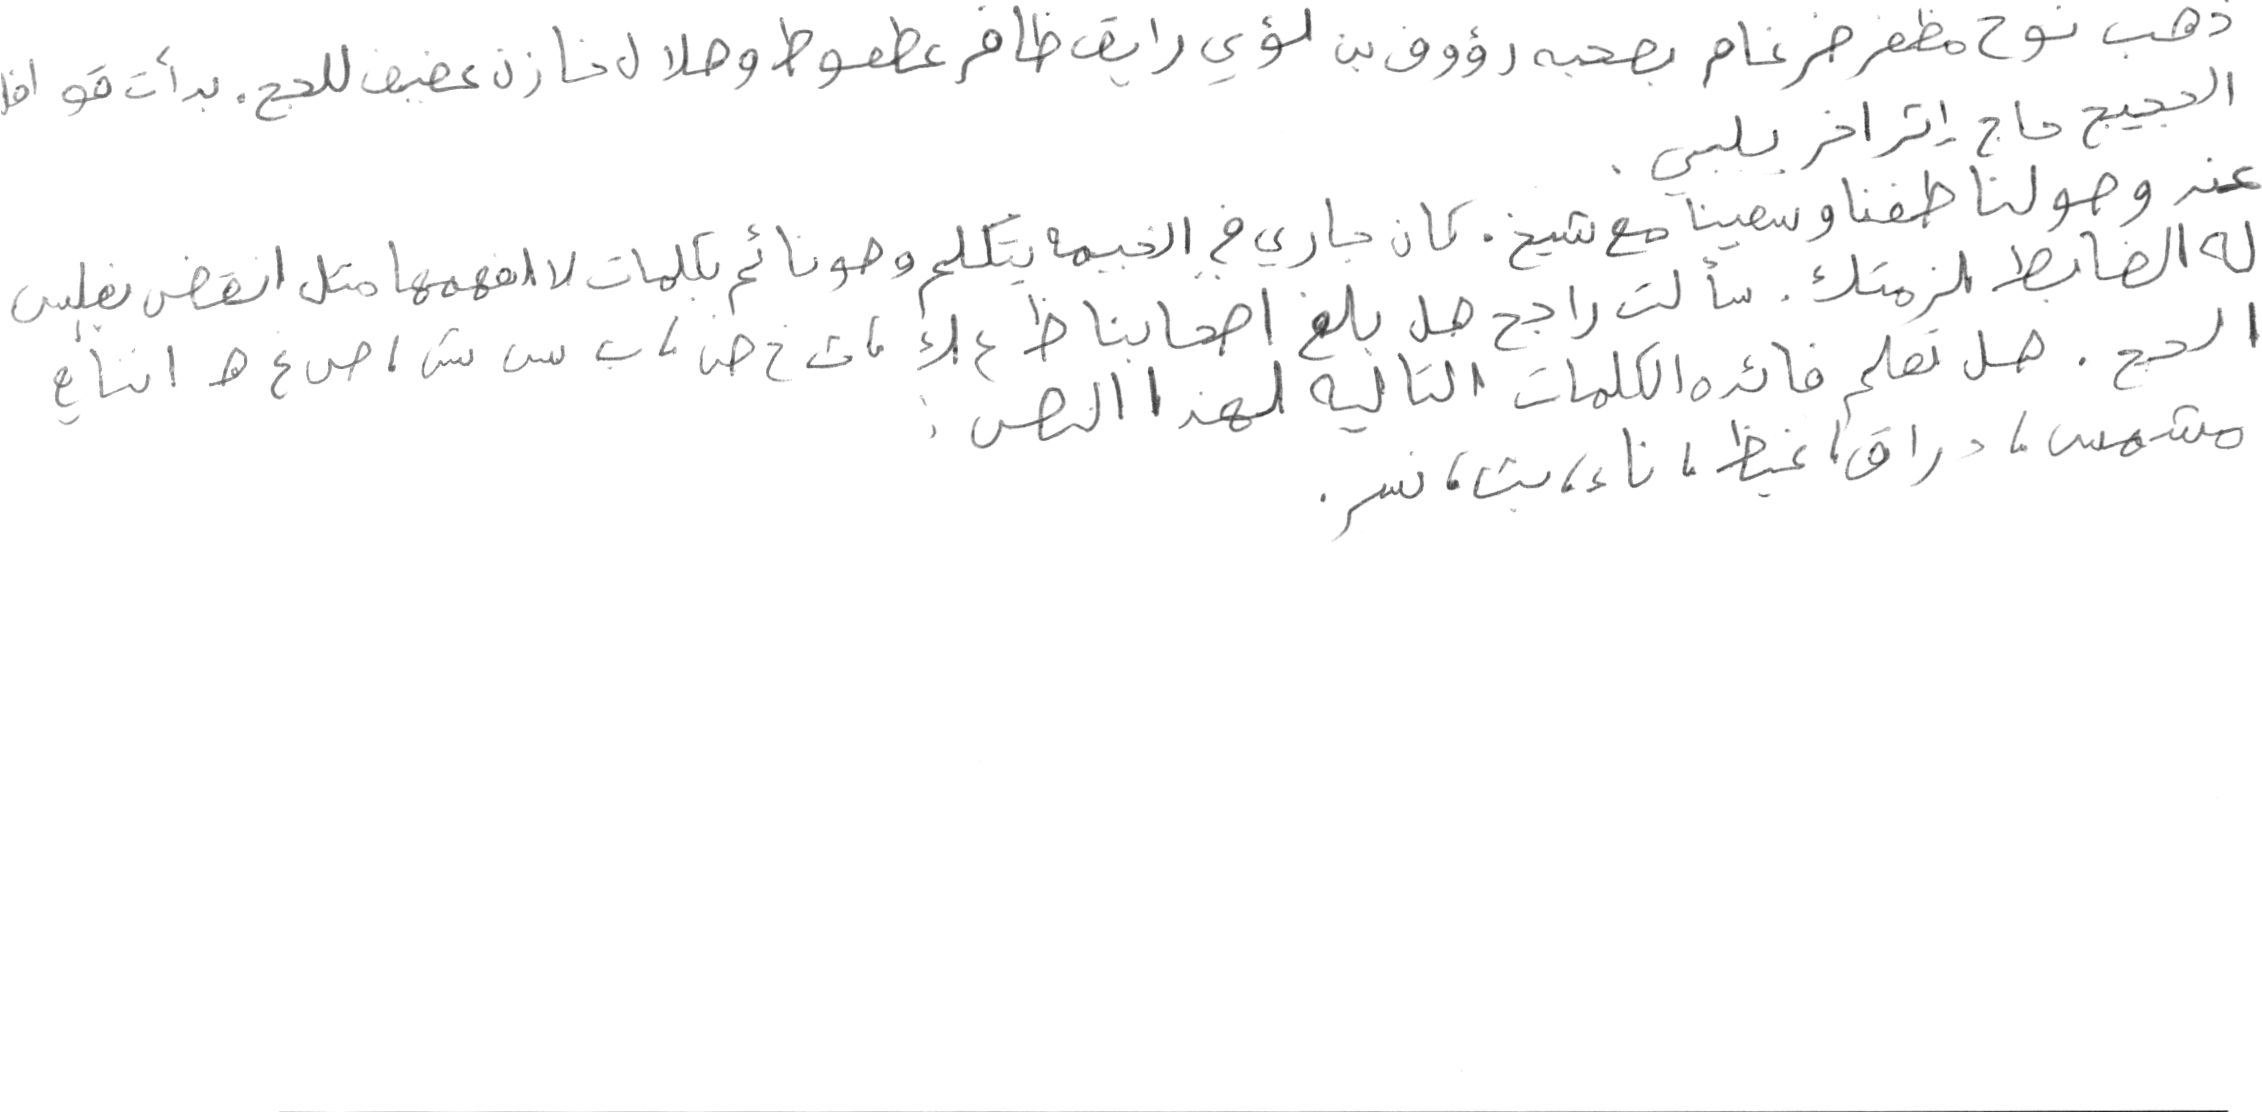 ذهب نوح مظفر ضرغام بصحبه رؤوف بن لؤي رايق ظافر عطعوط وهلال خازن عفيف للحج. بدأت قوافل
الحجيج حاج إثر اخر يلبي.
عند وصولنا طفنا وسعينا مع شيخ. كان جاري في الخيمه يتكلم وهو نائم بكلمات لا افهمها مثل انقض
له الضابط لزمتك. سألت راجح هل بلغ اصحابنا ظ ع ك، ث خ ض، ب س ش، ص غ ه
الحج. هل تعلم فائده الكلمات التاليه لهذا النص:
مشمس، دراق، غيظ، ناء، بث، نسر.